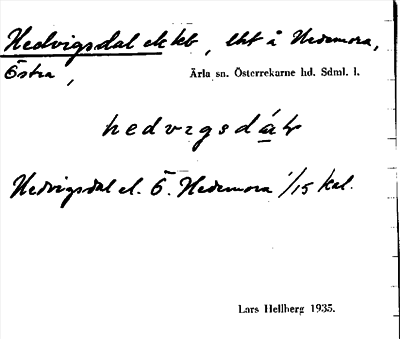 Hedvigsdal ek kb, lht å Hedemora,
Östra,
Ärla sn. Österrekarne hd. Sdml. l.
hedvigsdáɫ
Hedvigsdal el. Ö. Hedemora 1/15 kal.
Lars Hellberg 1935.